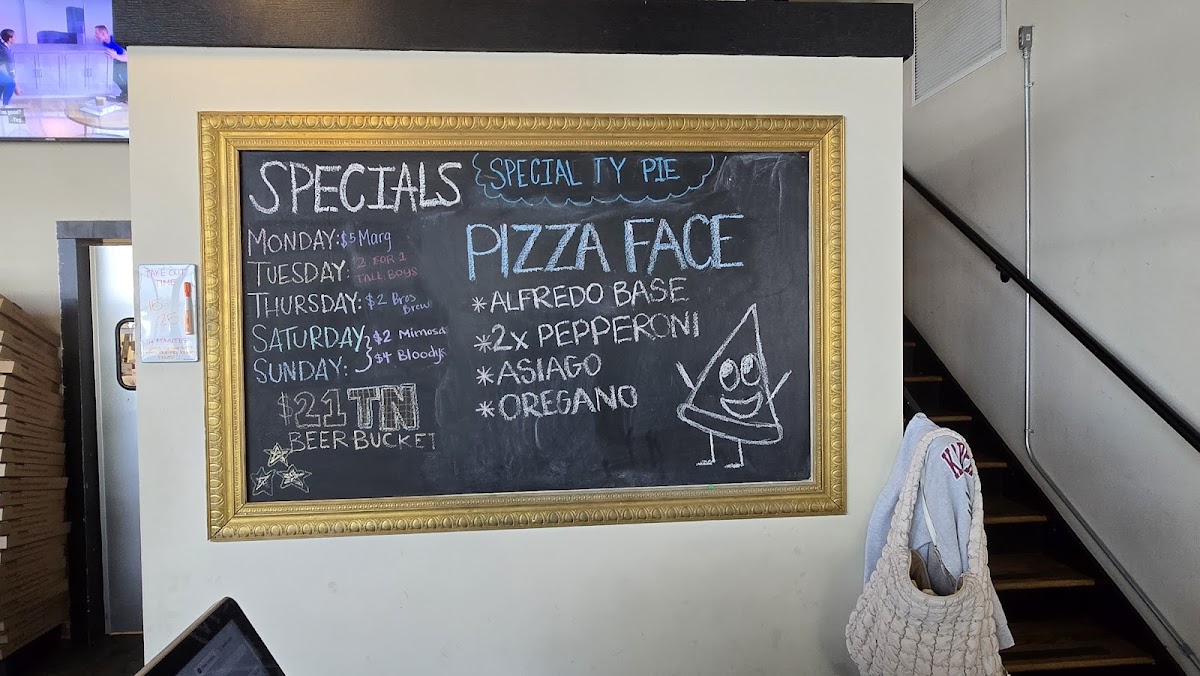 SPECIALS
MONDAY: $5 Marg
TUESDAY: 2 FOR 1
TALL BOYS
THURSDAY: $2 Bros
Brew
SATURDAY } $2 Mimosa
SUNDAY: } $4 Bloodys
$21 TN
BEER BUCKET
SPECIALTY PIE
PIZZA FACE
*ALFREDO BASE
*2x PEPPERONI
*ASIAGO
*OREGANO
TAKE OUT
TIME